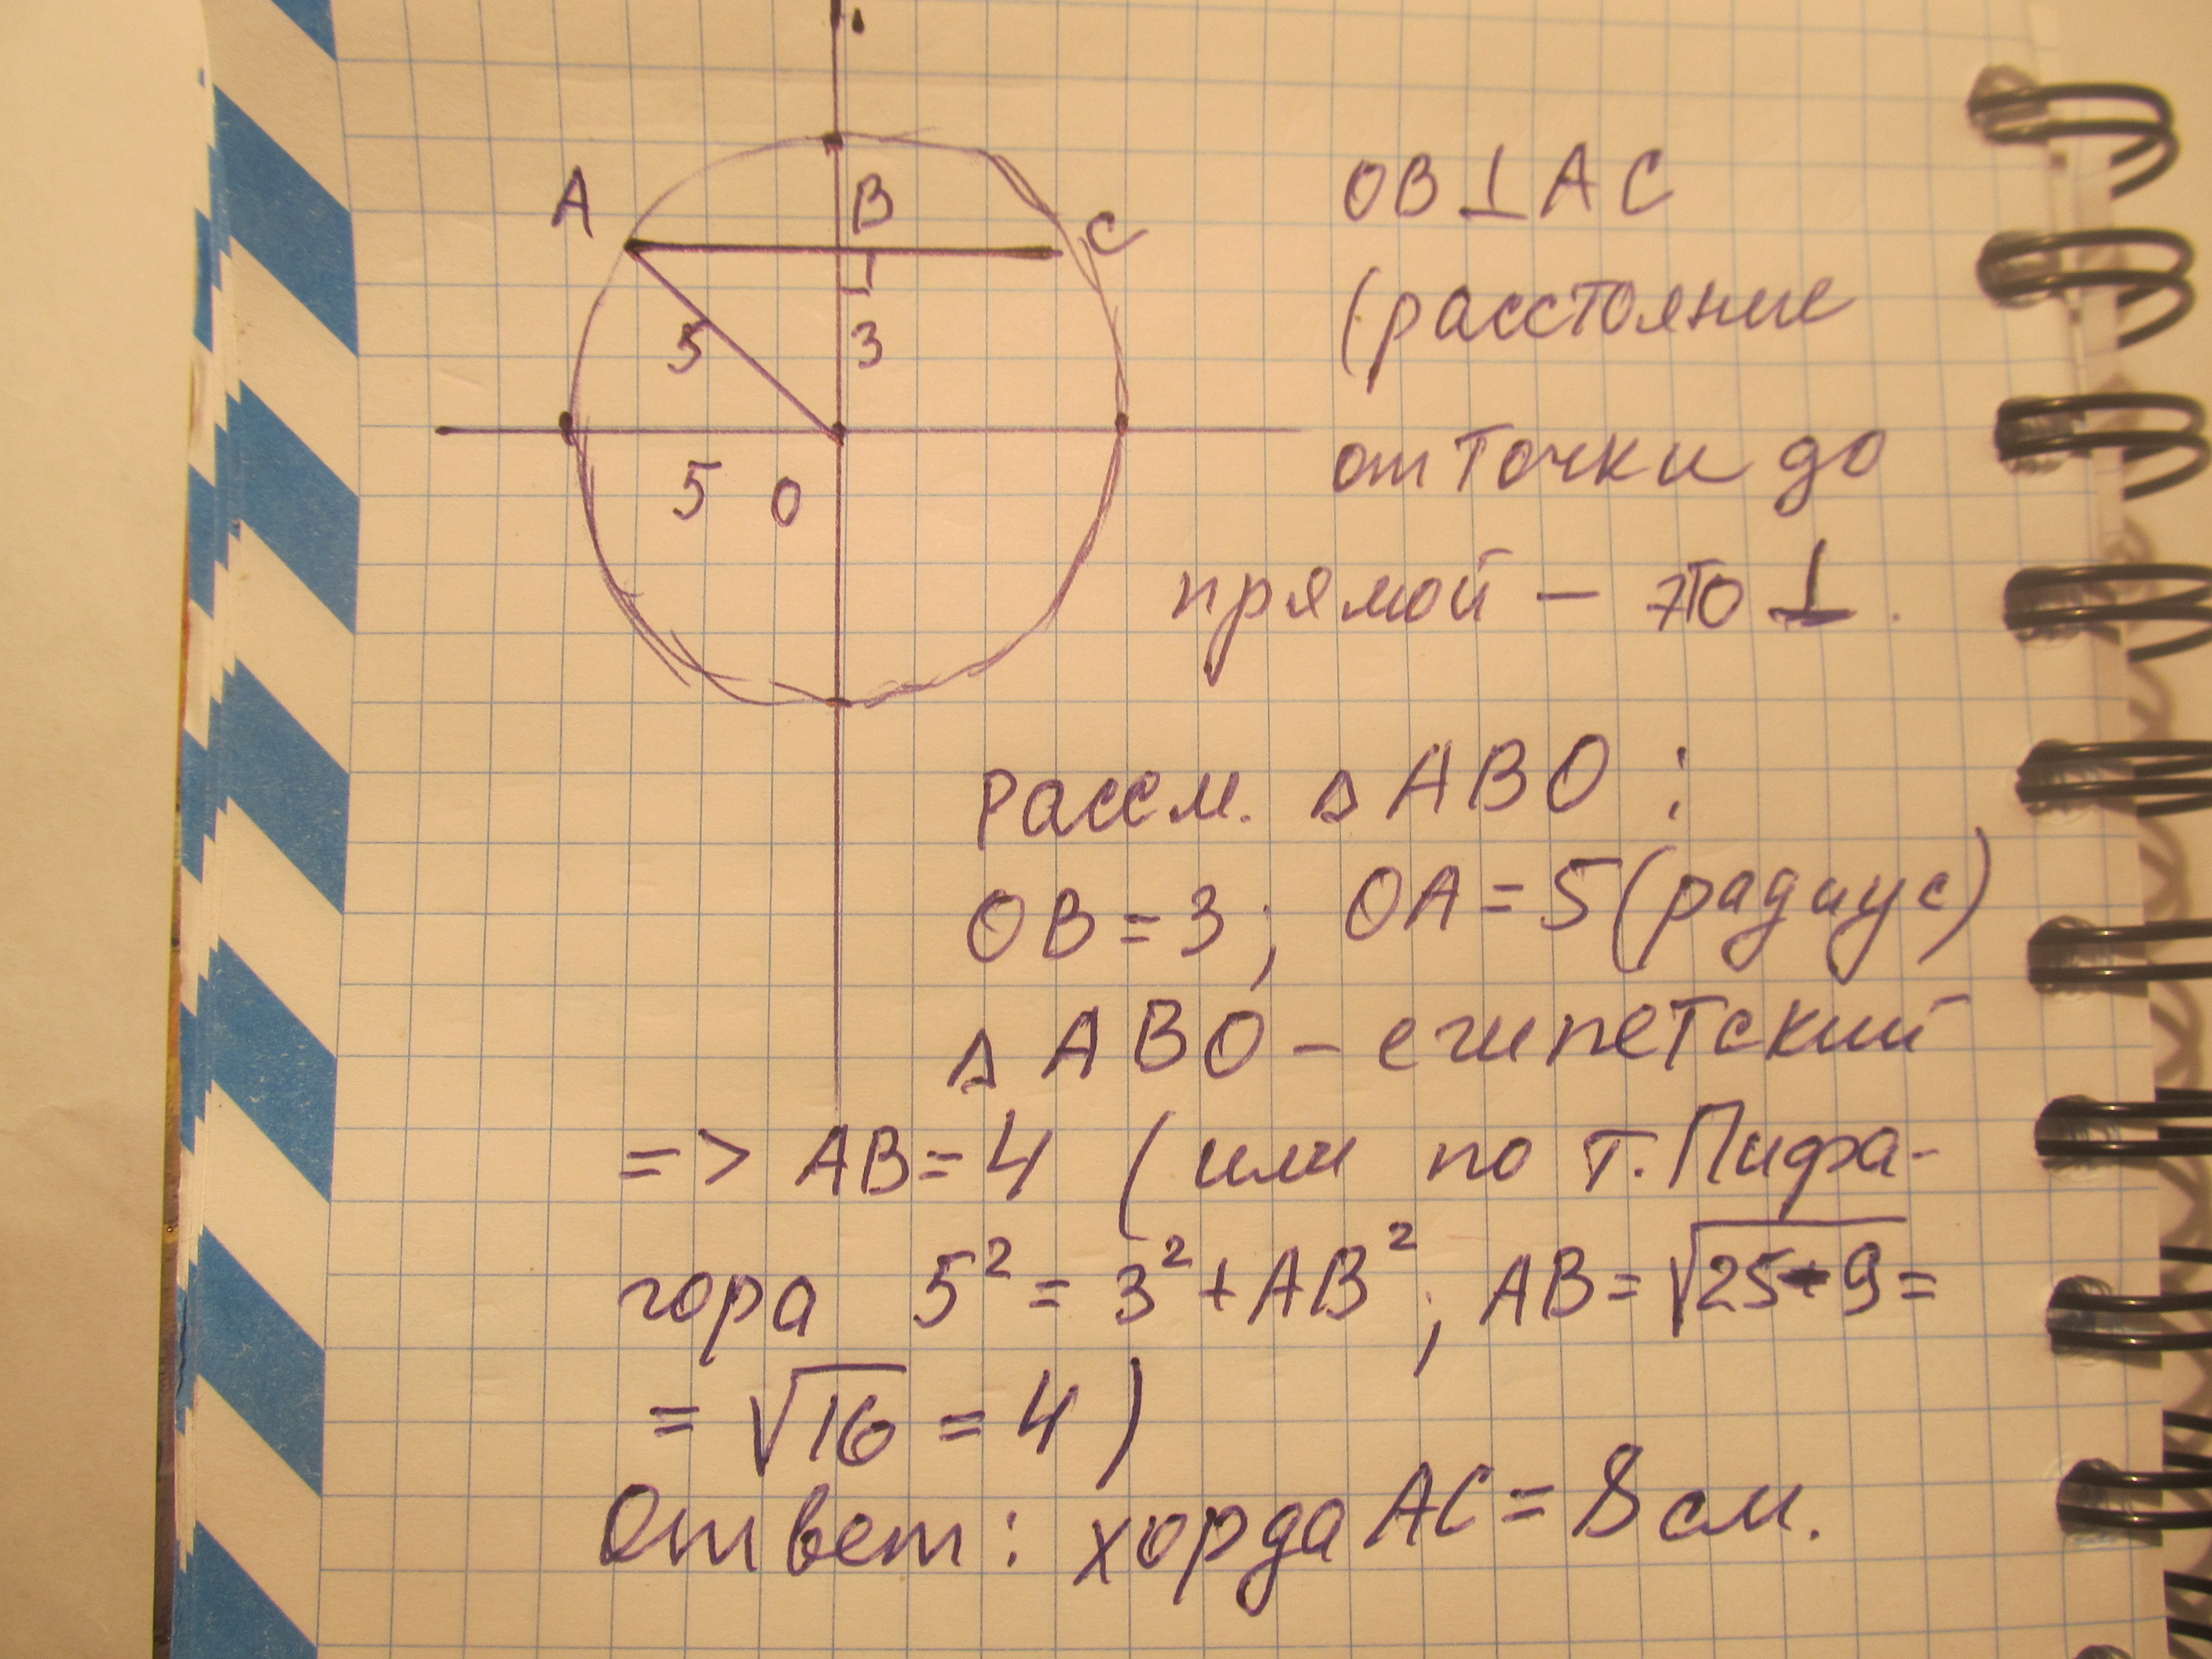 A
B
C
5
3
5
O
OB⊥AC
(расстояние
от точки до
прямой — это ⊥.
Рассм. △ABO:
OB = 3; OA = 5 (радиус)
△ABO – египетский
=> AB = 4 (или по т. Пифа-
гора 5² = 3² + AB²; AB = √25-9 =
= √16 = 4)
Ответ: хорда AC = 8 см.